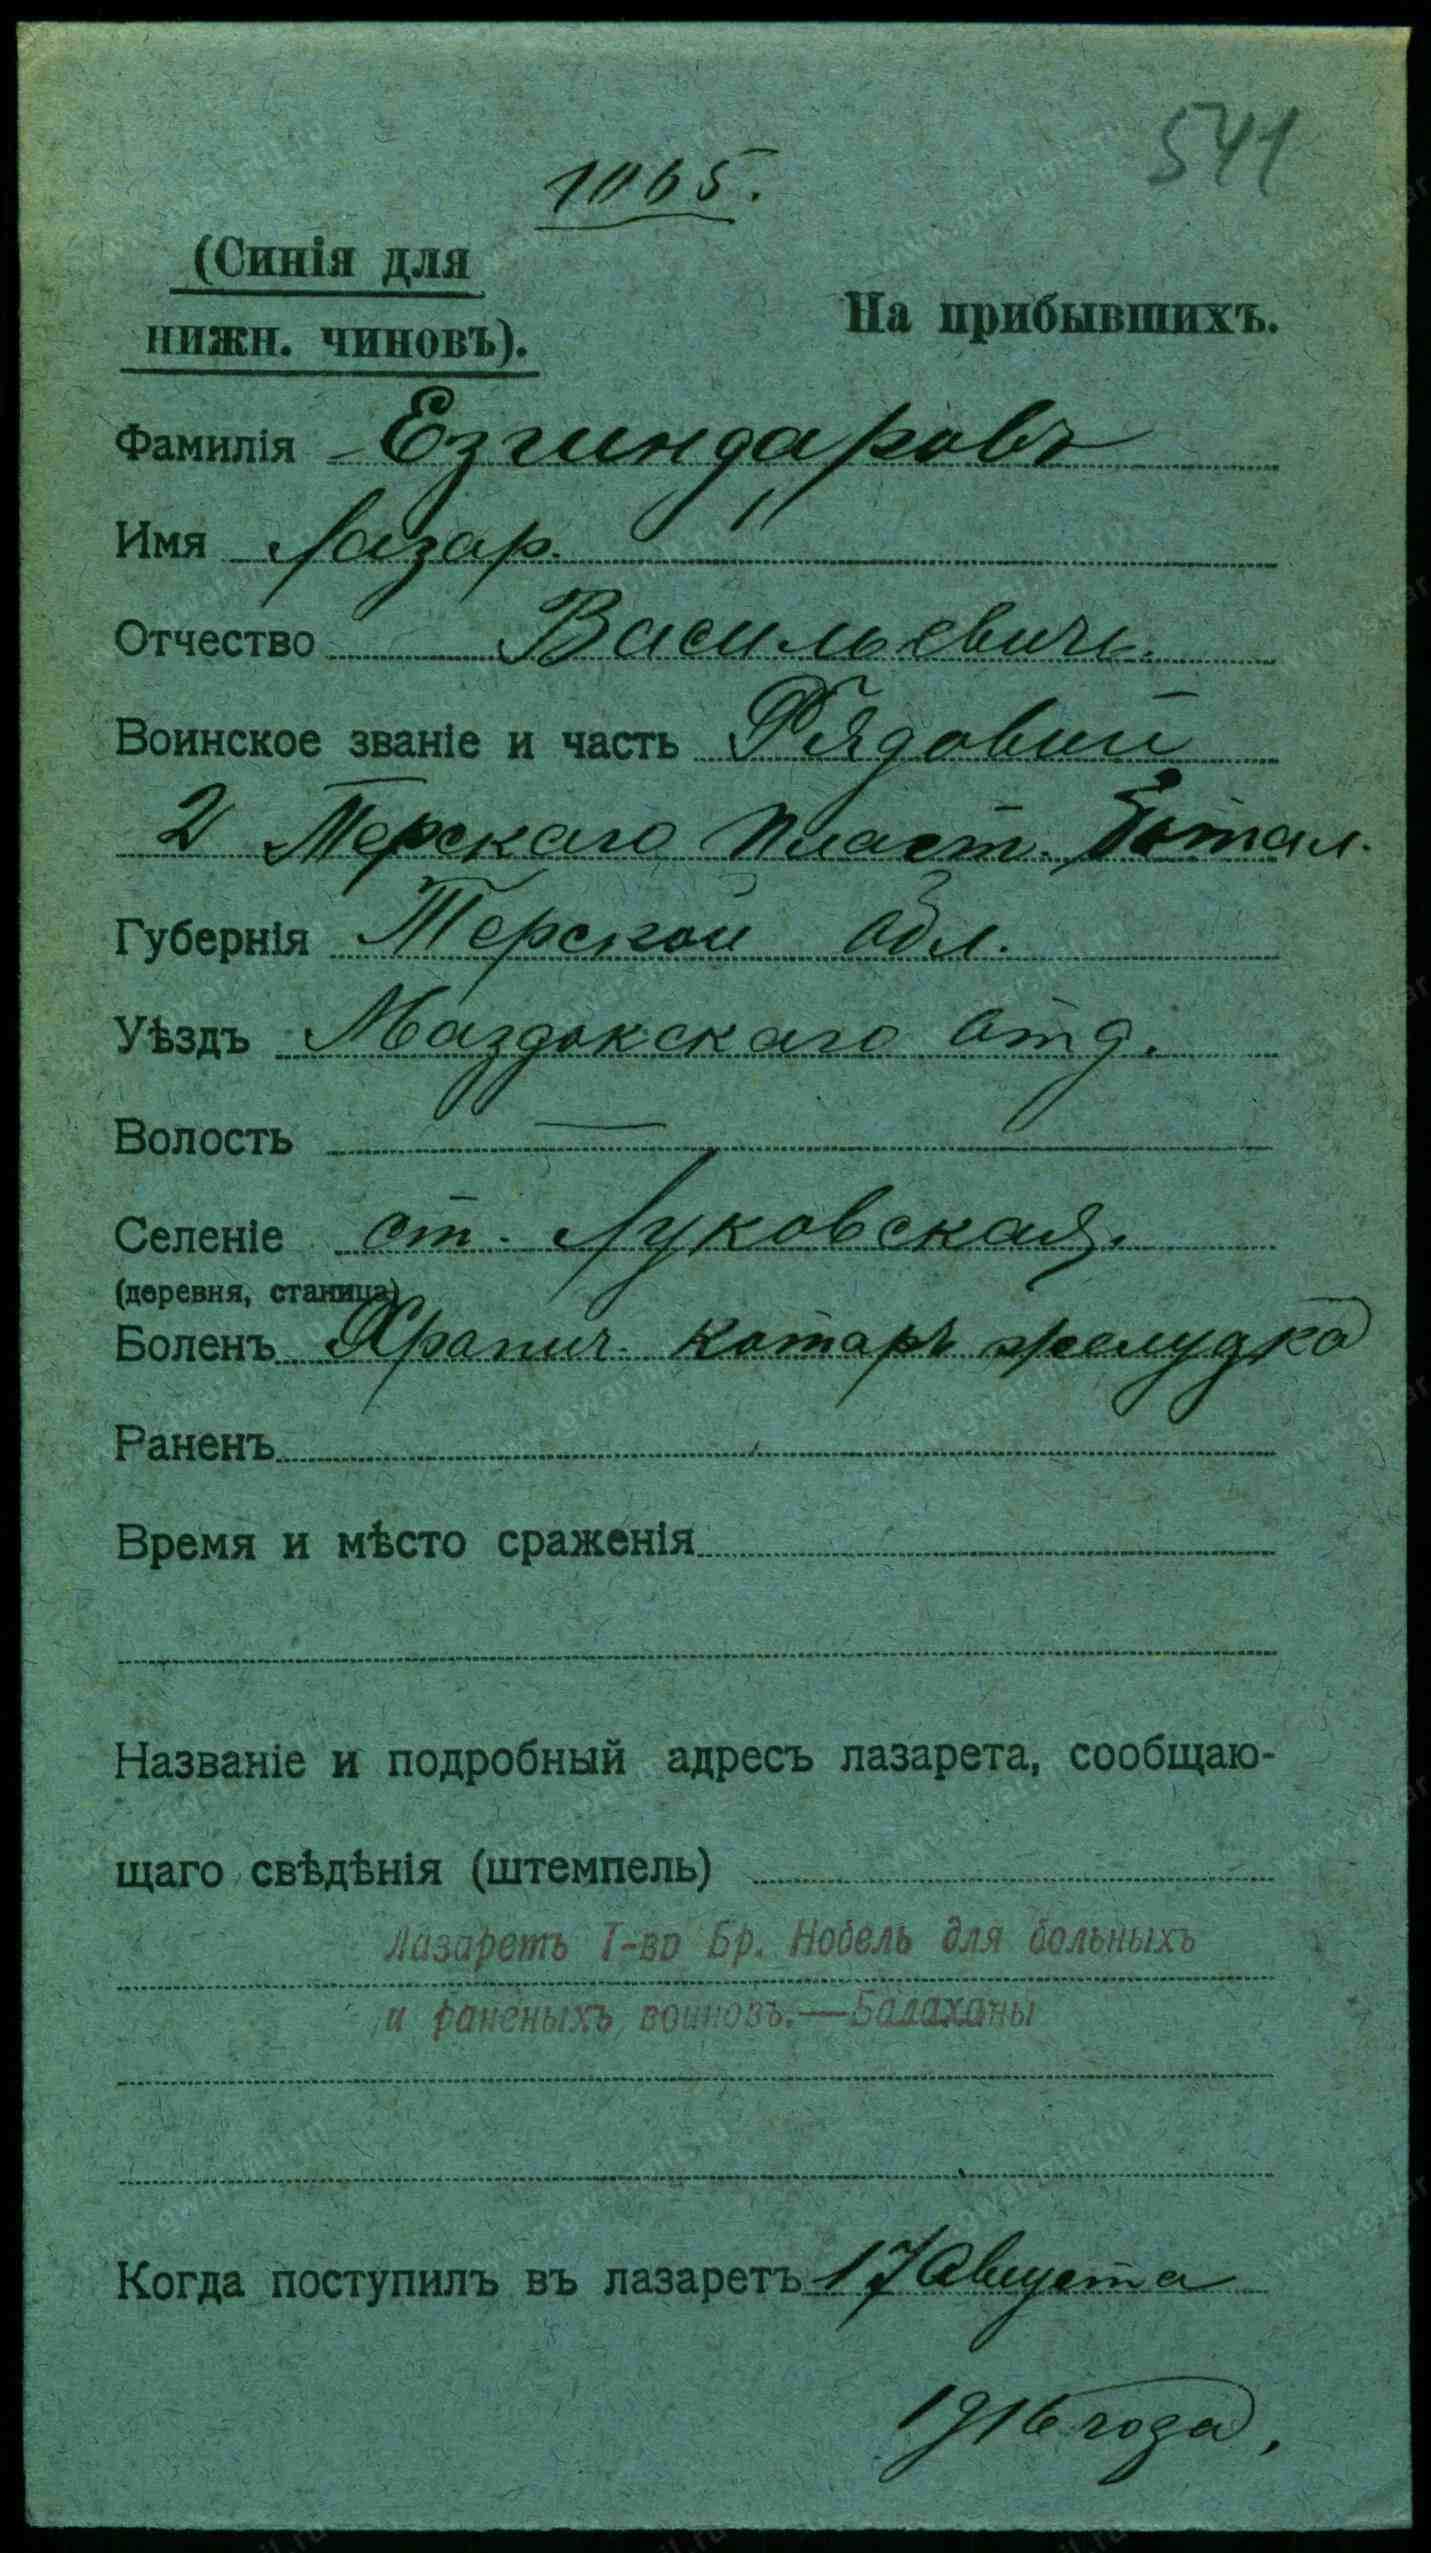 541
1065.
(Синія для
нижн. чиновъ).
На прибывшихъ.
Фамилія Езгиндаровъ
Имя Лазар.
Отчество Васильевичъ.
Воинское званіе и часть Рядовий
2 Терскаго Пласт. Батал.
Губернія Терской обл.
Уѣздъ Маздокскаго отд.
Волость —
Селеніе ст. Луковская.
(деревня, станица)
Боленъ Хранич. катаръ желудка
Раненъ
Время и мѣсто сраженія
Названіе и подробный адресъ лазарета, сообщаю-
щаго свѣдѣнія (штемпель)
Лазаретъ Т-во Бр. Нобель для больныхъ
и раненыхъ воиновъ.—Балаханы
Когда поступилъ въ лазаретъ 17 Августа
1916 года.